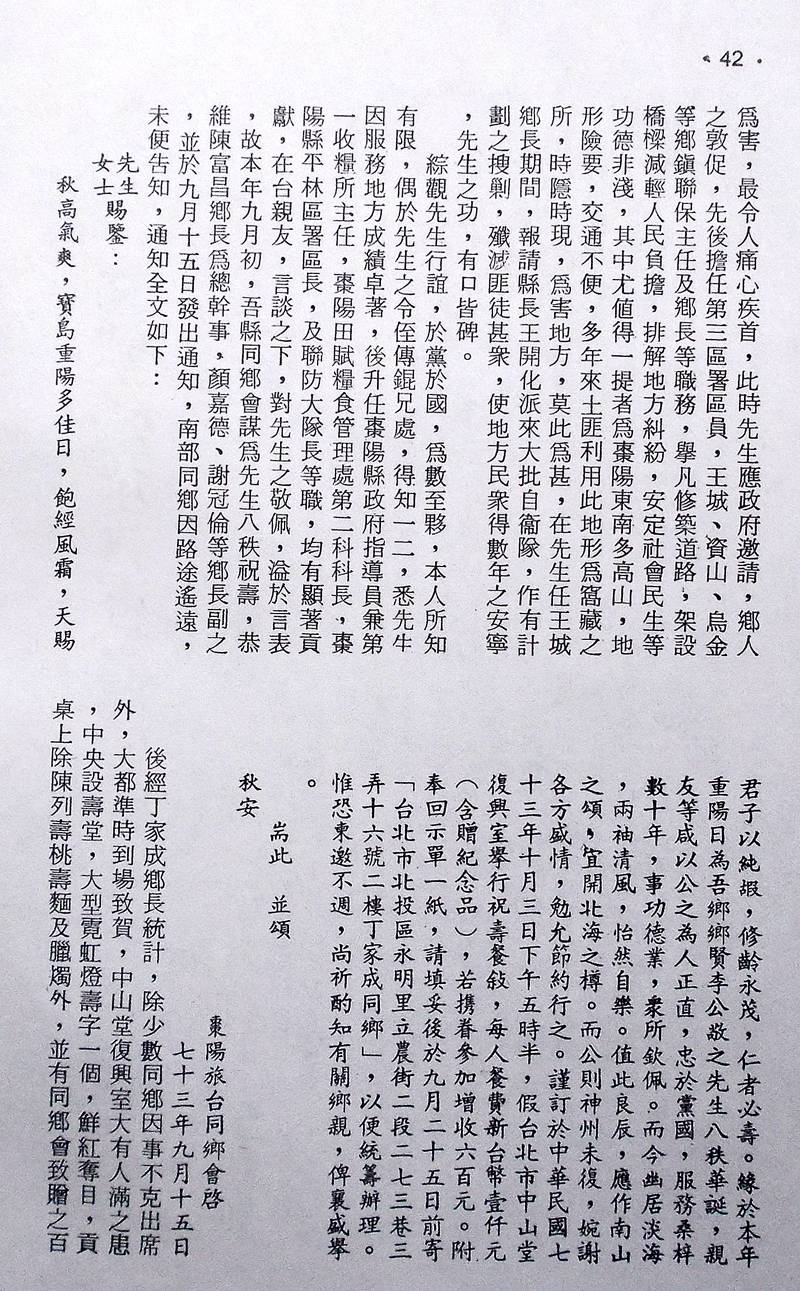 • 42 •
爲害，最令人痛心疾首，此時先生應政府邀請，鄉人
之敦促，先後擔任第三區署區員，王城、資山、烏金
等鄉鎭聯保主任及鄉長等職務，舉凡修築道路，架設
橋樑減輕人民負擔，排解地方糾紛，安定社會民生等
功德非淺，其中尤值得一提者爲棗陽東南多高山，地
形險要，交通不便，多年來土匪利用此地形爲窩藏之
所，時隱時現，爲害地方，莫此爲甚，在先生任王城
鄉長期間，報請縣長王開化派來大批自衞隊，作有計
劃之搜剿，殲滅匪徒甚衆，使地方民衆得數年之安寧
，先生之功，有口皆碑。
綜觀先生行誼，於黨於國，爲數至夥，本人所知
有限，偶於先生之令侄傳錕兄處，得知一二，悉先生
因服務地方成績卓著，後升任棗陽縣政府指導員兼第
一收糧所主任，棗陽田賦糧食管理處第二科科長，棗
陽縣平林區署區長，及聯防大隊長等職，均有顯著貢
獻，在台親友，言談之下，對先生之敬佩，溢於言表
，故本年九月初，吾縣同鄉會謀爲先生八秩祝壽，恭
維陳富昌鄉長爲總幹事，顏嘉德、謝冠倫等鄉長副之
，並於九月十五日發出通知，南部同鄉因路途遙遠，
未便告知，通知全文如下：
先生
女士賜鑒：
秋高氣爽，寶島重陽多佳日，飽經風霜，天賜
君子以純嘏，修齡永茂，仁者必壽。緣於本年
重陽日為吾鄉鄉賢李公敬之先生八秩華誕，親
友等咸以公之為人正直，忠於黨國，服務桑梓
數十年，事功德業，衆所欽佩。而今幽居淡海
，兩袖清風，怡然自樂。值此良辰，應作南山
之頌，宜開北海之樽。而公則神州未復，婉謝
各方盛情，勉允節約行之。謹訂於中華民國七
十三年十月三日下午五時半，假台北市中山堂
復興室舉行祝壽餐敍，每人餐費新台幣壹仟元
（含贈紀念品），若携眷參加增收六百元。附
奉回示單一紙，請填妥後於九月二十五日前寄
「台北市北投區永明里立農街二段二七三巷三
弄十六號二樓丁家成同鄉」，以便統籌辦理。
惟恐柬邀不週，尚祈酌知有關鄉親，俾襄盛舉
。
耑此　並頌
秋安
棗陽旅台同鄉會啓
七十三年九月十五日
後經丁家成鄉長統計，除少數同鄉因事不克出席
外，大都準時到場致賀，中山堂復興室大有人滿之患
，中央設壽堂，大型霓虹燈壽字一個，鮮紅奪目，貢
桌上除陳列壽桃壽麵及臘燭外，並有同鄉會致贈之百